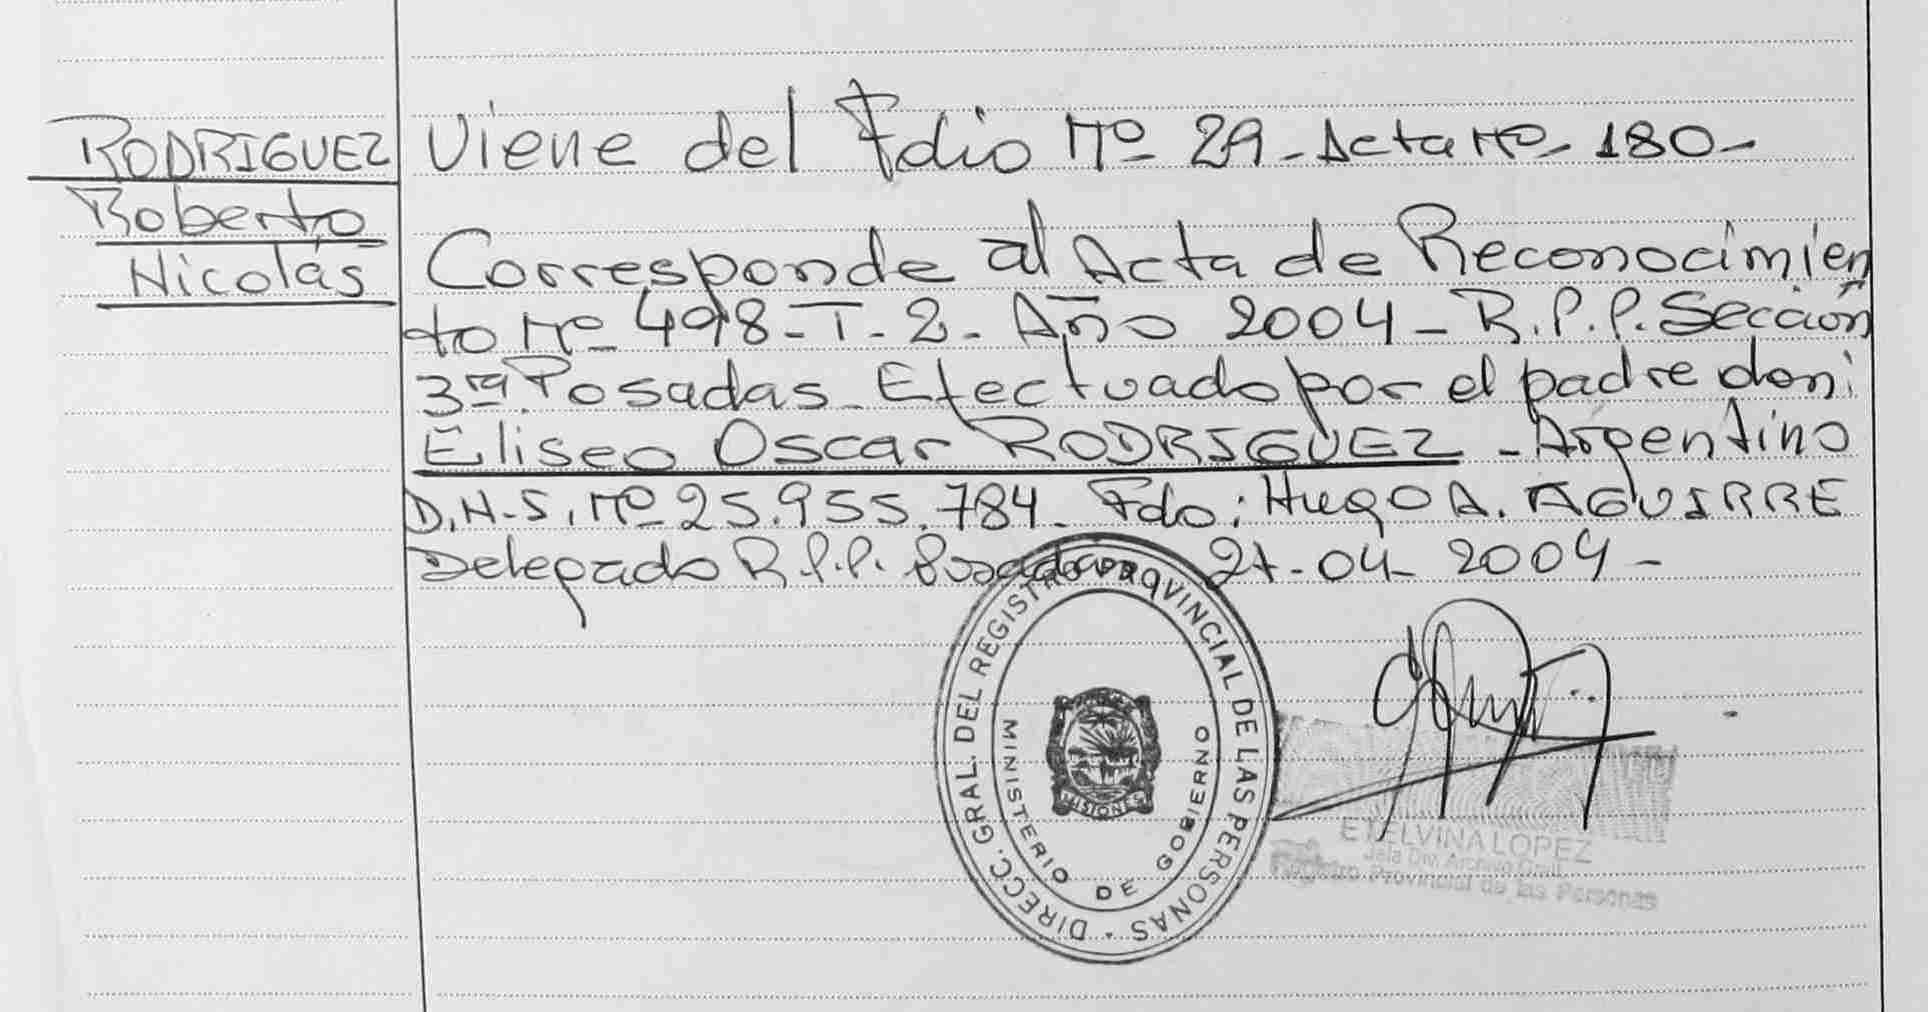 RODRIGUEZ
Roberto
Nicolás
Viene del Folio Nº 29 - Acta Nº 180 -
Corresponde al Acta de Reconocimien
to Nº 498 - T - 2 - Año 2004 - R.P.P. Sección
3ra Posadas - Efectuado por el padre don:
Eliseo Oscar RODRIGUEZ - Argentino
D.N.I. Nº 25.955.784 - Fdo: Hugo A. AGUIRRE
Delegado R.P.P. Posadas 27-04-2004 -
DIRECC. GRAL. DEL REGISTRO PROVINCIAL DE LAS PERSONAS
MINISTERIO DE GOBIERNO
MISIONES
ETELVINA LOPEZ
Jefa Div. Archivo Gral.
Registro Provincial de las Personas